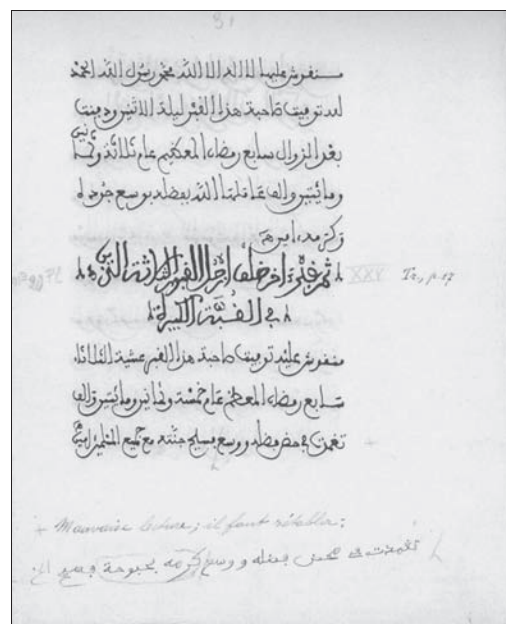 31
منقوش عليها لا اله الا الله محمد رسول الله الحمد
لله توفيت صاحبة هذا القبر ليلة الاثنين ودفنت
بعد الزوال سابع رمضان المعظم عام ثلاثة وثمانين
ومائتين والف عاملها الله بفضله بوسع جوده
وكرمه امين هـ
ثم اخر خلف القبور الثلاثة التي
XXX p. 17
في القبة الكبيرة
منقوش عليه توفيت صاحبة هذا القبر عشية الثلاثاء
سابع رمضان المعظم عام خمسة وثمانين ومائتين والف
تغمدت في محض فضله ووسع فسيح جنته مع جميع المسلمين امين
+ Mauvaise lecture; il faut rétablir:
تغمدت في محض فضله ووسع كرمه بحبوحة فسيح الخ